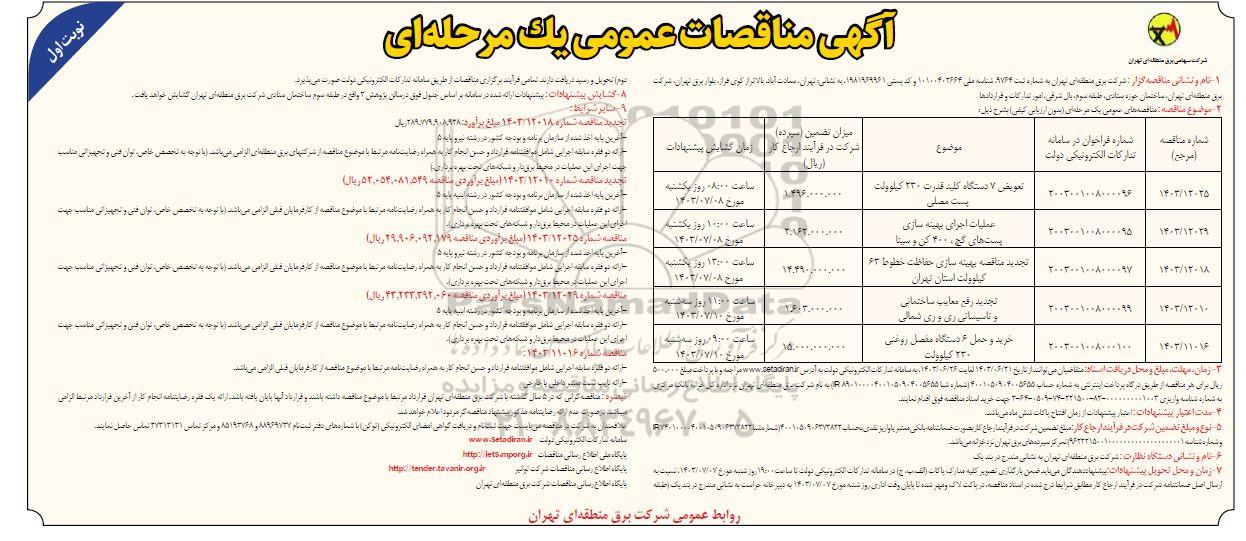 نوبت اول
آگهی مناقصات عمومی یك مرحله‌ای
شرکت سهامی برق منطقه‌ای تهران
۱-نام و نشانی مناقصه‌گزار : شرکت برق منطقه‌ای تهران به شماره ثبت ۹۷۶۴، شناسه ملی ۱۰۱۰۰۴۰۲۶۶۴ و کد پستی ۱۹۸۱۹۶۹۹۶۱ به نشانی: تهران، سعادت آباد، بالاتر از کوی فراز، بلوار برق تهران، شرکت
برق منطقه‌ای تهران، ساختمان حوزه ستادی، طبقه سوم، بال شرقی، امور تدارکات و قراردادها
۲-موضوع مناقصه : مناقصه‌های عمومی یک مرحله‌ای (بدون ارزیابی کیفی) بشرح ذیل:
شماره مناقصه (مرجع)	شماره فراخوان در سامانه تدارکات الکترونیکی دولت	موضوع	میزان تضمین (سپرده) شرکت در فرآیند ارجاع کار (ریال)	زمان گشایش پیشنهادات
۱۴۰۳/۱۲۰۲۵	۲۰۰۳۰۰۱۰۰۸۰۰۰۰۹۶	تعویض ۷ دستگاه کلید قدرت ۲۳۰ کیلوولت پست مصلی	۱.۴۹۶.۰۰۰.۰۰۰	ساعت ۰۸:۰۰ روز یکشنبه مورخ ۱۴۰۳/۰۷/۰۸
۱۴۰۳/۱۲۰۲۹	۲۰۰۳۰۰۱۰۰۸۰۰۰۰۹۵	عملیات اجرای بهینه سازی پست‌های گچ ، ۴۰۰ کن و سینا	۲.۱۶۲.۰۰۰.۰۰۰	ساعت ۱۰:۰۰ روز یکشنبه مورخ ۱۴۰۳/۰۷/۰۸
۱۴۰۳/۱۲۰۱۸	۲۰۰۳۰۰۱۰۰۸۰۰۰۰۹۷	تجدید مناقصه بهینه سازی حفاظت خطوط ۶۳ کیلوولت استان تهران	۱۴.۴۹۰.۰۰۰.۰۰۰	ساعت ۱۳:۰۰ روز یکشنبه مورخ ۱۴۰۳/۰۷/۰۸
۱۴۰۳/۱۲۰۱۰	۲۰۰۳۰۰۱۰۰۸۰۰۰۰۹۹	تجدید رفع معایب ساختمانی و تاسیساتی ری و ری شمالی	۱.۶۰۳.۰۰۰.۰۰۰	ساعت ۱۱:۰۰ روز سه‌شنبه مورخ ۱۴۰۳/۰۷/۱۰
۱۴۰۳/۱۱۰۱۶	۲۰۰۳۰۰۱۰۰۸۰۰۰۱۰۰	خرید و حمل ۶ دستگاه مفصل روغنی ۲۳۰ کیلوولت	۱۵.۰۰۰.۰۰۰.۰۰۰	ساعت ۰۹:۰۰ روز سه‌شنبه مورخ ۱۴۰۳/۰۷/۱۰
۳-زمان، مهلت، مبلغ و محل دریافت اسناد: متقاضیان می‌توانند از تاریخ ۱۴۰۳/۰۶/۲۱ لغایت ۱۴۰۳/۰۶/۲۶ به سامانه تدارکات الکترونیکی دولت به آدرس www.setadiran.ir مراجعه و با پرداخت مبلغ ۵۰۰.۰۰۰
ریال برای هر مناقصه از طریق درگاه پرداخت اینترنتی به شماره حساب ۴۰۰۱۰۵۰۹۰۴۰۰۵۶۵۵ به نام شرکت برق منطقه‌ای تهران نزد اداره کل خزانه بانک مرکزی
جهت خرید اسناد مناقصه فوق اقدام نمایند.
۴-مدت اعتبار پیشنهادات : اعتبار پیشنهادات از زمان افتتاح پاکات شش ماه می‌باشد.
۵-نوع و مبلغ تضمین شرکت در فرآیند ارجاع کار : مبلغ تضمین شرکت در فرآیند ارجاع کار بصورت ضمانتنامه بانکی معتبر یا واریز نقدی بحساب
تمرکز سپرده‌های برق تهران نزد خزانه می‌باشد.
۶-نام و نشانی دستگاه نظارت : شرکت برق منطقه‌ای تهران به نشانی مندرج در بند یک
۷-زمان و محل تحویل پیشنهادات: پیشنهاددهندگان می‌باید ضمن بارگذاری تصویر کلیه مدارک پاکات (الف،ب، ج) در سامانه تدارکات الکترونیکی دولت تا ساعت ۱۹:۰۰ روز شنبه مورخ ۱۴۰۳/۰۷/۰۷، نسبت به
ارسال اصل ضمانتنامه شرکت در فرآیند ارجاع کار مطابق شرایط درج شده در اسناد مناقصه، در پاکت لاک و مهر شده تا پایان وقت اداری روز شنبه مورخ ۱۴۰۳/۰۷/۰۷ به دبیرخانه حراست به نشانی مندرج در بند یک (طبقه
دوم) تحویل و رسید دریافت دارند. تمامی فرآیند برگزاری مناقصات از طریق سامانه تدارکات الکترونیکی دولت صورت می‌پذیرد.
۸-گشایش پیشنهادات : پیشنهادات ارائه شده در سامانه بر اساس جدول فوق در سالن پژوهش ۳ واقع در طبقه سوم ساختمان ستادی شرکت برق منطقه‌ای تهران گشایش خواهد یافت.
۹-سایر شرایط:
تجدید مناقصه شماره ۱۴۰۳/۱۲۰۱۸ مبلغ برآورد: ۲۸۹.۷۷۹.۹۰۸.۹۳۸ریال
-آخرین پایه اخذ شده از سازمان برنامه و بودجه کشور در رشته نیرو پایه ۵
-ارائه دو فقره سابقه اجرایی شامل موافقتنامه قرارداد و حسن انجام کار به همراه رضایت‌نامه مرتبط با موضوع مناقصه از شرکتهای برق منطقه‌ای الزامی می‌باشد (با توجه به تخصص خاص، توان فنی و تجهیزاتی مناسب
جهت اجرای این عملیات در محیط برق‌دار و شبکه‌های تحت بهره برداری.)
تجدید مناقصه شماره ۱۴۰۳/۱۲۰۱۰ (مبلغ برآوردی مناقصه ۵۲.۰۵۴.۰۸۱.۵۴۹ ریال)
-آخرین پایه اخذ شده از سازمان برنامه و بودجه کشور در رشته ابنیه پایه ۵
-ارائه دو فقره سابقه اجرایی شامل موافقتنامه قرارداد و حسن انجام کار به همراه رضایت‌نامه مرتبط با موضوع مناقصه از کارفرمایان قبلی الزامی می‌باشد (با توجه به تخصص خاص، توان فنی و تجهیزاتی مناسب جهت
اجرای این عملیات در محیط برق‌دار و شبکه‌های تحت بهره برداری).
مناقصه شماره ۱۴۰۳/۱۲۰۲۵ (مبلغ برآوردی مناقصه ۲۹.۹۰۶.۰۹۲.۱۷۹ ریال)
-آخرین پایه اخذ شده از سازمان برنامه و بودجه کشور در رشته نیرو پایه ۵
-ارائه دو فقره سابقه اجرایی شامل موافقتنامه قرارداد و حسن انجام کار به همراه رضایت‌نامه مرتبط با موضوع مناقصه از کارفرمایان قبلی الزامی می‌باشد (با توجه به تخصص خاص، توان فنی و تجهیزاتی مناسب جهت
اجرای این عملیات در محیط برق‌دار و شبکه‌های تحت بهره برداری).
مناقصه شماره ۱۴۰۳/۱۲۰۲۹ (مبلغ برآوردی مناقصه ۴۳.۲۳۳.۳۹۲.۰۶۰ ریال)
-آخرین پایه اخذ شده از سازمان برنامه و بودجه کشور در رشته ابنیه پایه ۵
-ارائه دو فقره سابقه اجرایی شامل موافقتنامه قرارداد و حسن انجام کار به همراه رضایت‌نامه مرتبط با موضوع مناقصه از کارفرمایان قبلی الزامی می‌باشد (با توجه به تخصص خاص، توان فنی و تجهیزاتی مناسب جهت
اجرای این عملیات در محیط برق‌دار و شبکه‌های تحت بهره برداری).
مناقصه شماره ۱۴۰۳/۱۱۰۱۶:
-ارائه دو فقره سابقه اجرایی شامل موافقتنامه قرارداد و حسن انجام کار به همراه رضایت‌نامه مرتبط با موضوع مناقصه از کارفرمایان قبلی الزامی می‌باشد.
-ارائه تایپ تست معتبر داخلی یا خارجی
تبصره : مناقصه‌گرانی که در ۵ سال گذشته با شرکت برق منطقه‌ای تهران قرارداد مرتبط با موضوع مناقصه داشته باشند و قرارداد آنها پایان یافته باشد، ارائه یک فقره رضایتنامه انجام کار از آخرین قرارداد مرتبط الزامی
میباشد در صورت عدم ارائه رضایتنامه مذکور، پیشنهاد مناقصه‌گر مردود اعلام خواهد شد.
علاقمندان به شرکت در مناقصه می‌بایست جهت ثبت‌نام و دریافت گواهی امضای الکترونیکی (توکن) با شماره‌های دفتر ثبت‌نام ۸۸۹۶۹۷۳۷ و ۸۵۱۹۳۷۶۸ و مرکز تماس ۲۷۳۱۳۱۳۱ تماس حاصل نمایند.
سامانه تدارکات الکترونیکی دولت www.setadiran.ir
پایگاه ملی اطلاع رسانی مناقصات http://iets.mporg.ir
پایگاه اطلاع رسانی مناقصات شرکت توانیر http://tender.tavanir.org.ir
پایگاه اطلاع‌رسانی مناقصات شرکت برق منطقه‌ای تهران
روابط عمومی شرکت برق منطقه‌ای تهران